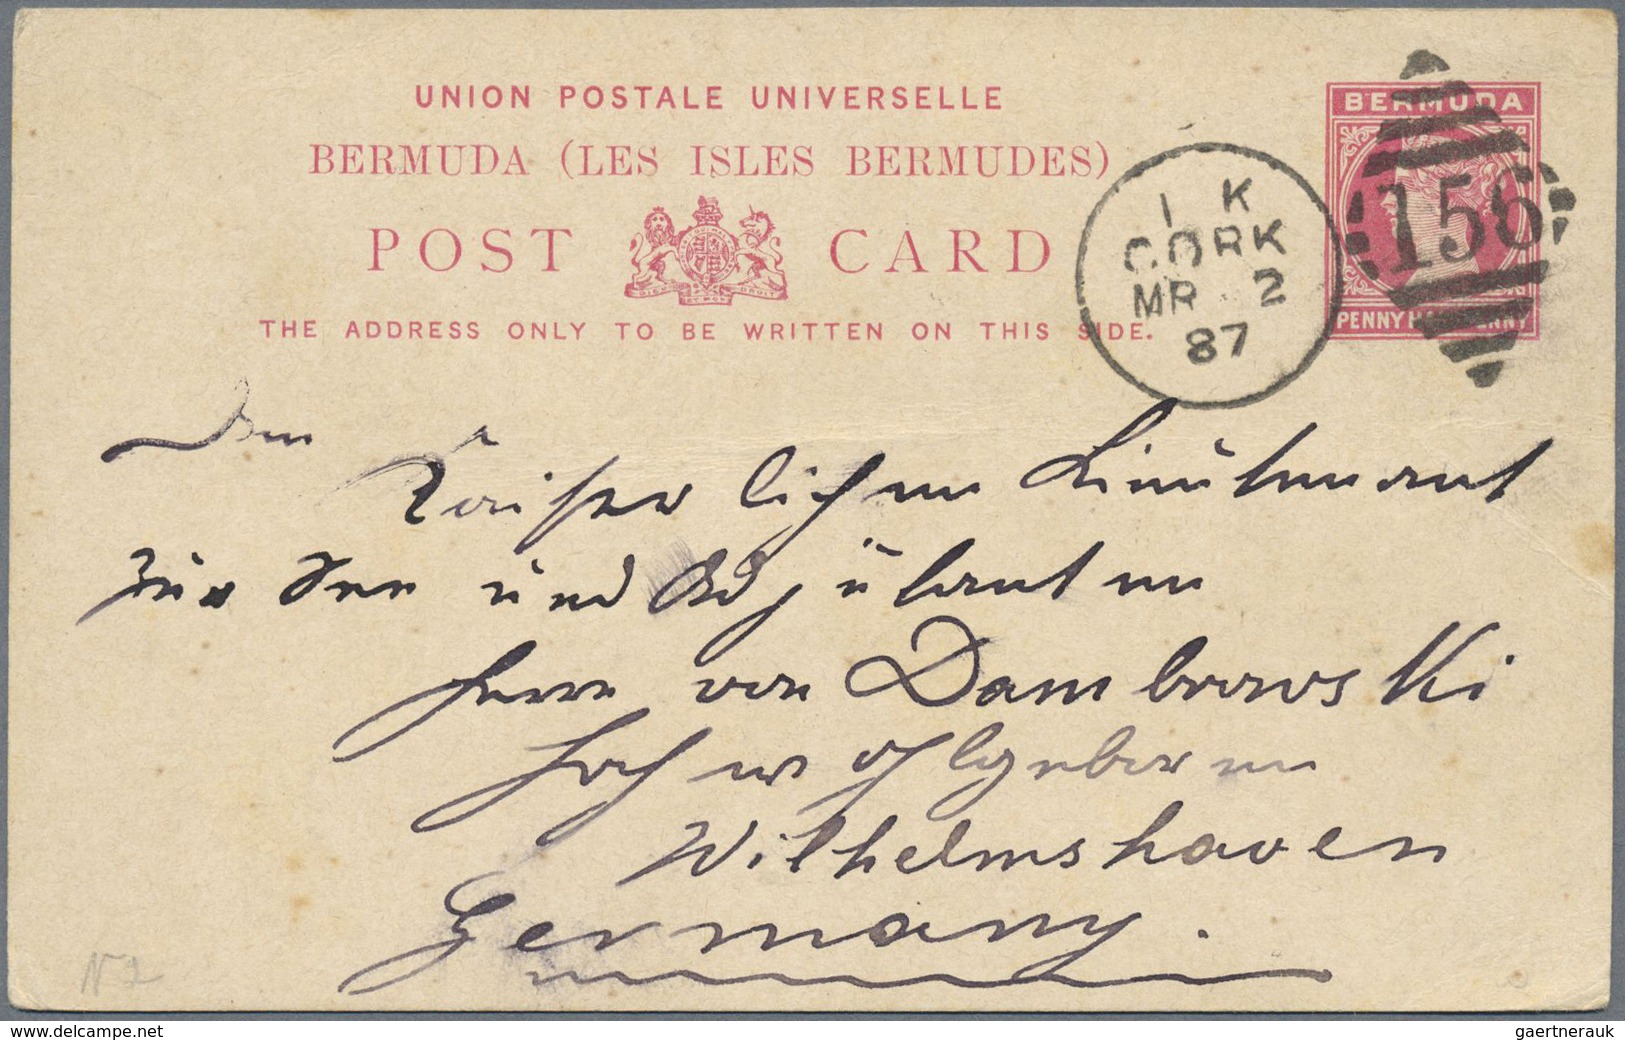 UNION POSTALE UNIVERSELLE
BERMUDA (LES ISLES BERMUDES)
POST CARD
DIEU ET MON DROIT
THE ADDRESS ONLY TO BE WRITTEN ON THIS SIDE.
BERMUDA
PENNY HALFPENNY
156
1 K
CORK
MR 2
87
Dem
Kaiserlichen Lieutenant
zur See und Adjutanten
Herrn von Dambrowski
Hochwohlgeboren
Wilhelmshaven
Germany.
N 2
www.delcampe.net
gaertnerauk